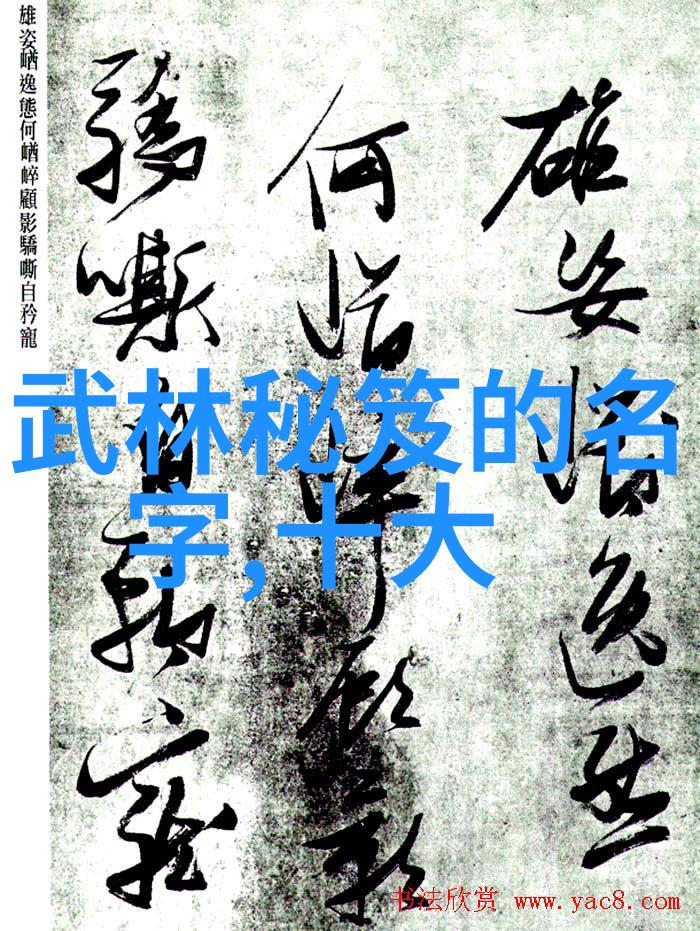 雄姿崷逸態何崷崪顧影驕嘶自矜寵
雄姿崷逸態
何崷崪顧影
驕嘶自矜寵
武林秘笈的名
字,十大
书法欣赏 www.yac8.com